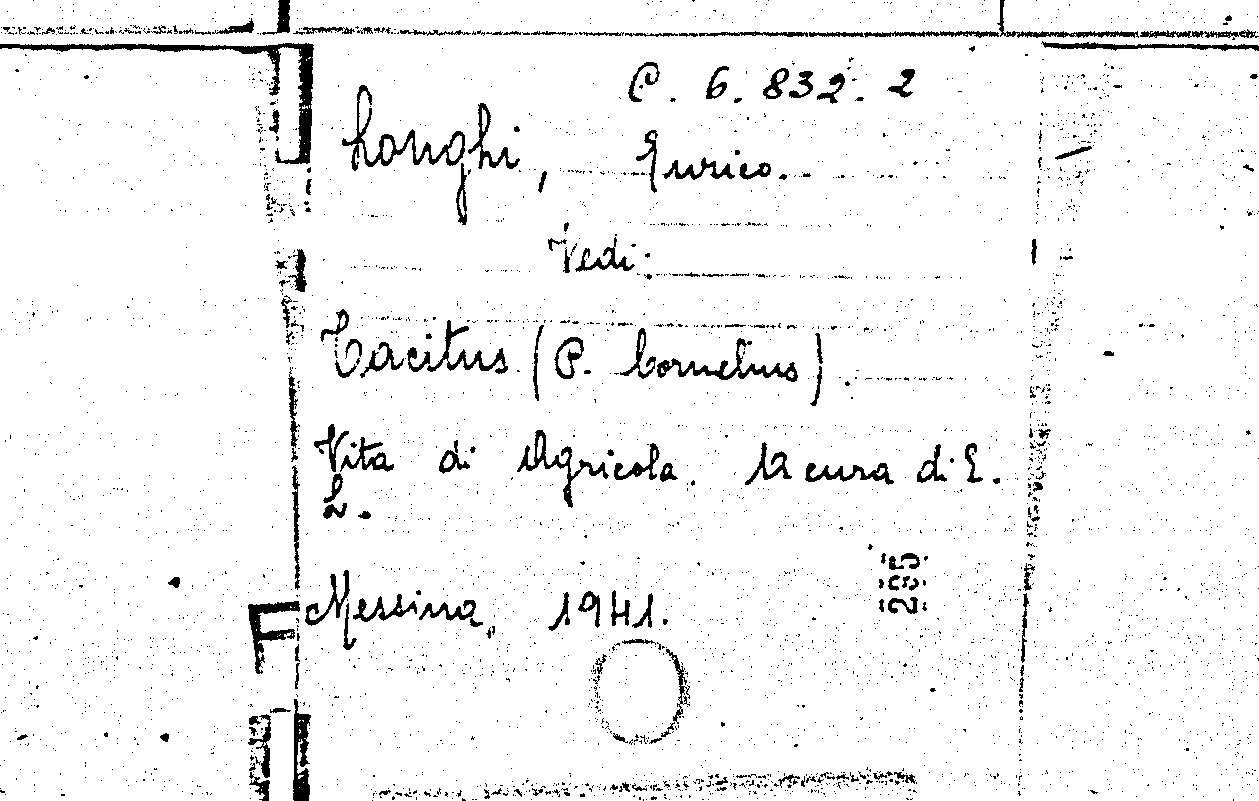 C. 6. 832. 2
Longhi, Enrico.
Vedi:
Tacitus (P. Cornelius).
Vita di Agricola. A cura di E.
L.
Messina, 1941.
F